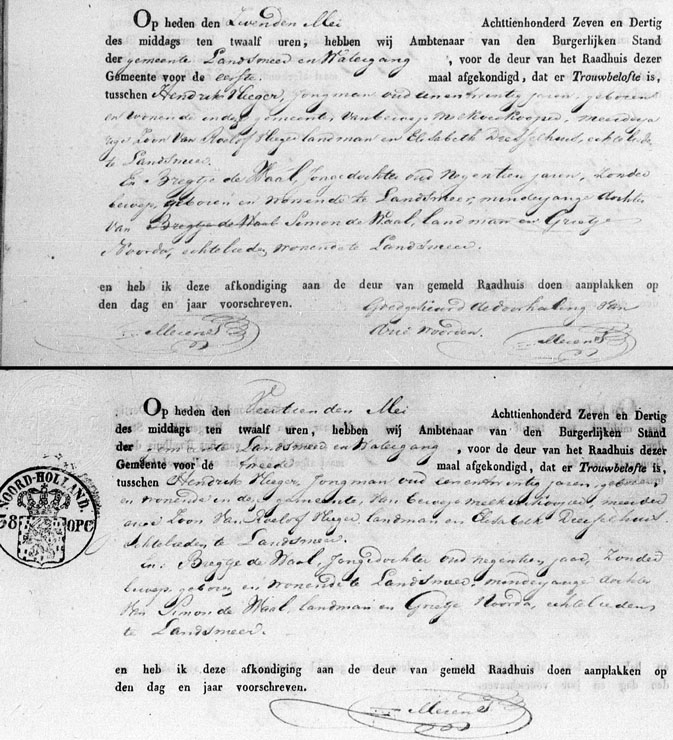 Op heden den Zevenden Mei Achttienhonderd Zeven en Dertig
des middags ten twaalf uren, hebben wij Ambtenaar van den Burgerlijken Stand
der gemeente Landsmeer en Watergang , voor de deur van het Raadhuis dezer
Gemeente voor de eerste maal afgekondigd, dat er Trouwbelofte is,
tusschen Hendrik Vlieger, Jongman oud eenentwintig jaren, geboren
en wonende in deze gemeente, van beroep melkverkooper, meerderja
rige Zoon van Roelof Vlieger landman en Elisabeth echtelieden
te Landsmeer.
En Bregtje de Waal, Jongedochter oud negentien jaren, zonder
beroep, geboren en wonende te Landsmeer, minderjarige dochter
van Bregtje de Waal Simon de Waal, landman en Grietje
Noorda, echtelieden, wonende te Landsmeer.
en heb ik deze afkondiging aan de deur van gemeld Raadhuis doen aanplakken op
den dag en jaar voorschreven. Goedgekeurd de doorhaling van
drie woorden.
Op heden den Veertienden Mei Achttienhonderd Zeven en Dertig
des middags ten twaalf uren, hebben wij Ambtenaar van den Burgerlijken Stand
der gemeente Landsmeer en Watergang , voor de deur van het Raadhuis dezer
Gemeente voor de tweede maal afgekondigd, dat er Trouwbelofte is,
tusschen Hendrik Vlieger, Jongman oud eenentwintig jaren, geboren
en wonende in deze gemeente, van beroep melkverkooper, meerder
jarige Zoon van Roelof Vlieger, landman en Elisabeth
echtelieden te Landsmeer.
en Bregge de Waal, Jongedochter oud negentien jaar, zonder
beroep, geboren en wonende te Landsmeer, minderjarige dochter
van Simon de Waal, landman en Grietje Noorda, echtelieden
te Landsmeer.
NOORD-HOLLAND.
38 OPC
en heb ik deze afkondiging aan de deur van gemeld Raadhuis doen aanplakken op
den dag en jaar voorschreven.